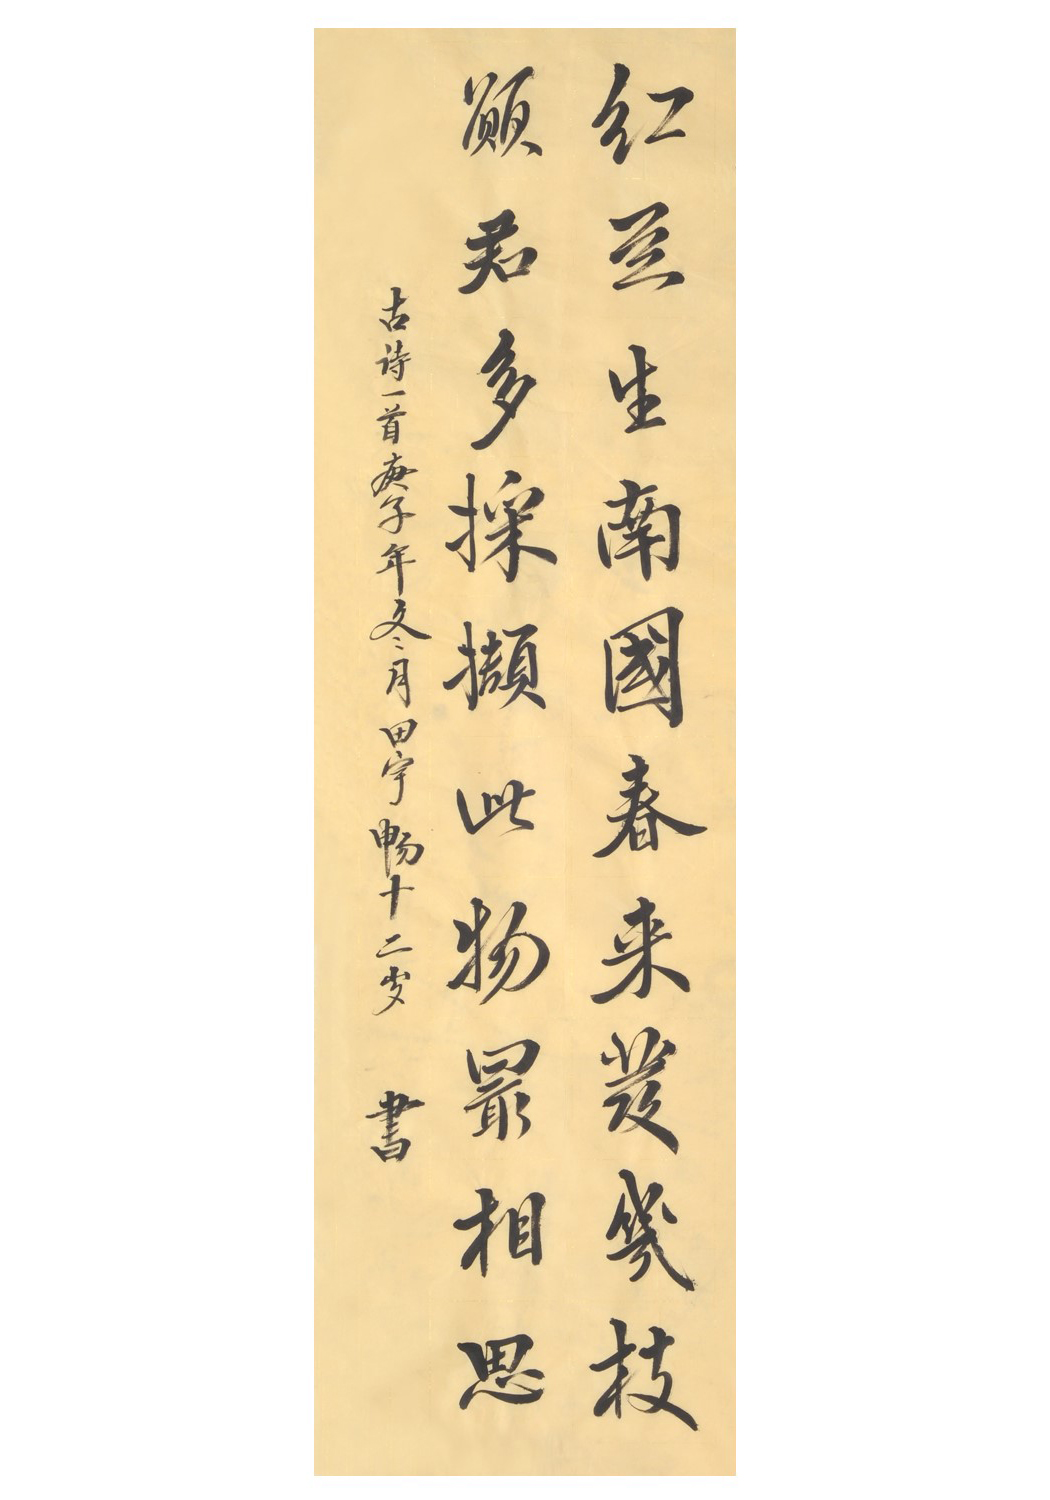 紅豆生南國春来發幾枝
願君多採擷此物最相思
古诗一首庚子年冬月田宇畅十二岁書